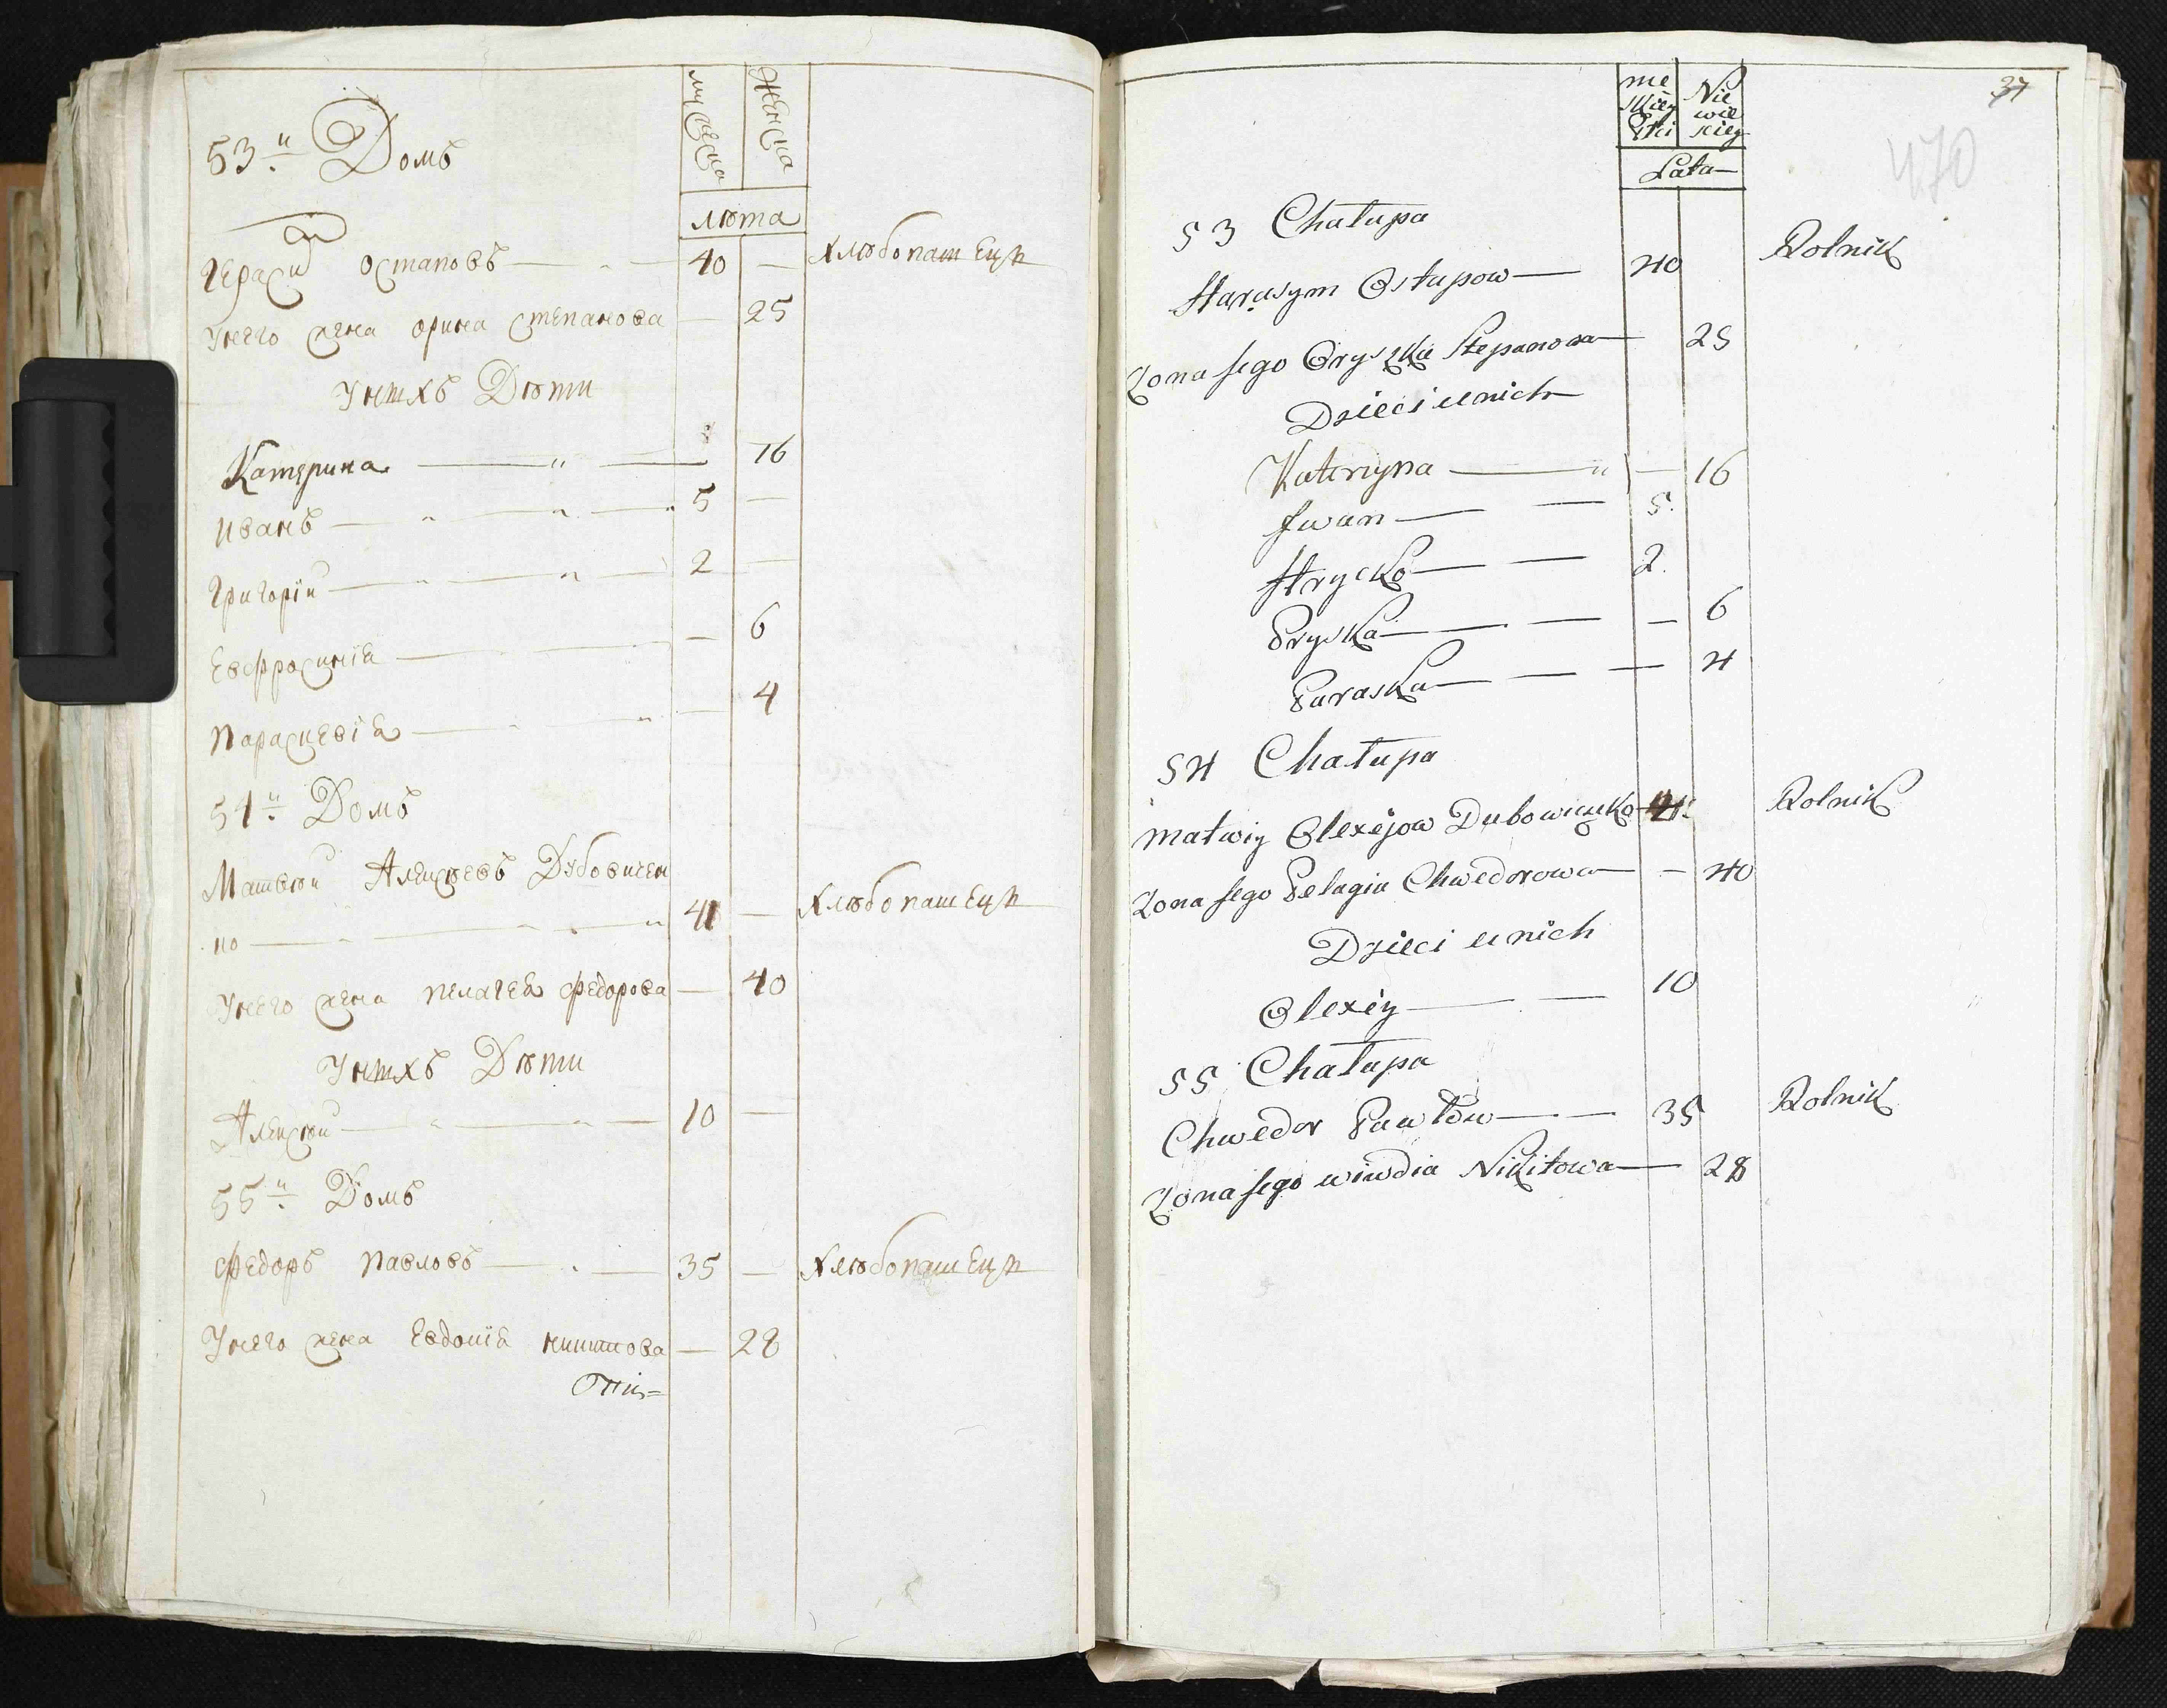 мужеска женска
лѣта
53й Домъ
Герасим Остаповъ 40 — хлѣбопашецъ
Унего жена орина степанова — 25
Унихъ Дѣти
Катерина — 16
иванъ 5 —
григорїи 2 —
Евфросинїа — 6
параскевїа — 4
54й Домъ
Матвѣи Алексѣевъ Дубовичен
ко 41 — хлѣбопашецъ
Унего жена пелагеа федорова — 40
Унихъ Дѣти
Алексѣи 10 —
55й Домъ
федоръ павловъ 35 — хлѣбопашецъ
Унего жена Евдокїа никитова — 28
37
470
Lata
53 Chałupa
Harasym Ostapow 40 Rolnik
Zona Jego Oryszka Stepanowa 25
Dzieci u nich
Kateryna — 16
Jwan 5.
Hrycko 2.
Pryska — 6
Paraska — 4
54 Chałupa
Matwiy Olexiejow Dubowiczenko 41 Rolnik
Zona Jego Pelagia Chwedorowa — 40
Dzieci u nich
Olexiy 10
55 Chałupa
Chwedor Pawłow 35 Rolnik
Zona Jego wiwdia Nikitowa 28